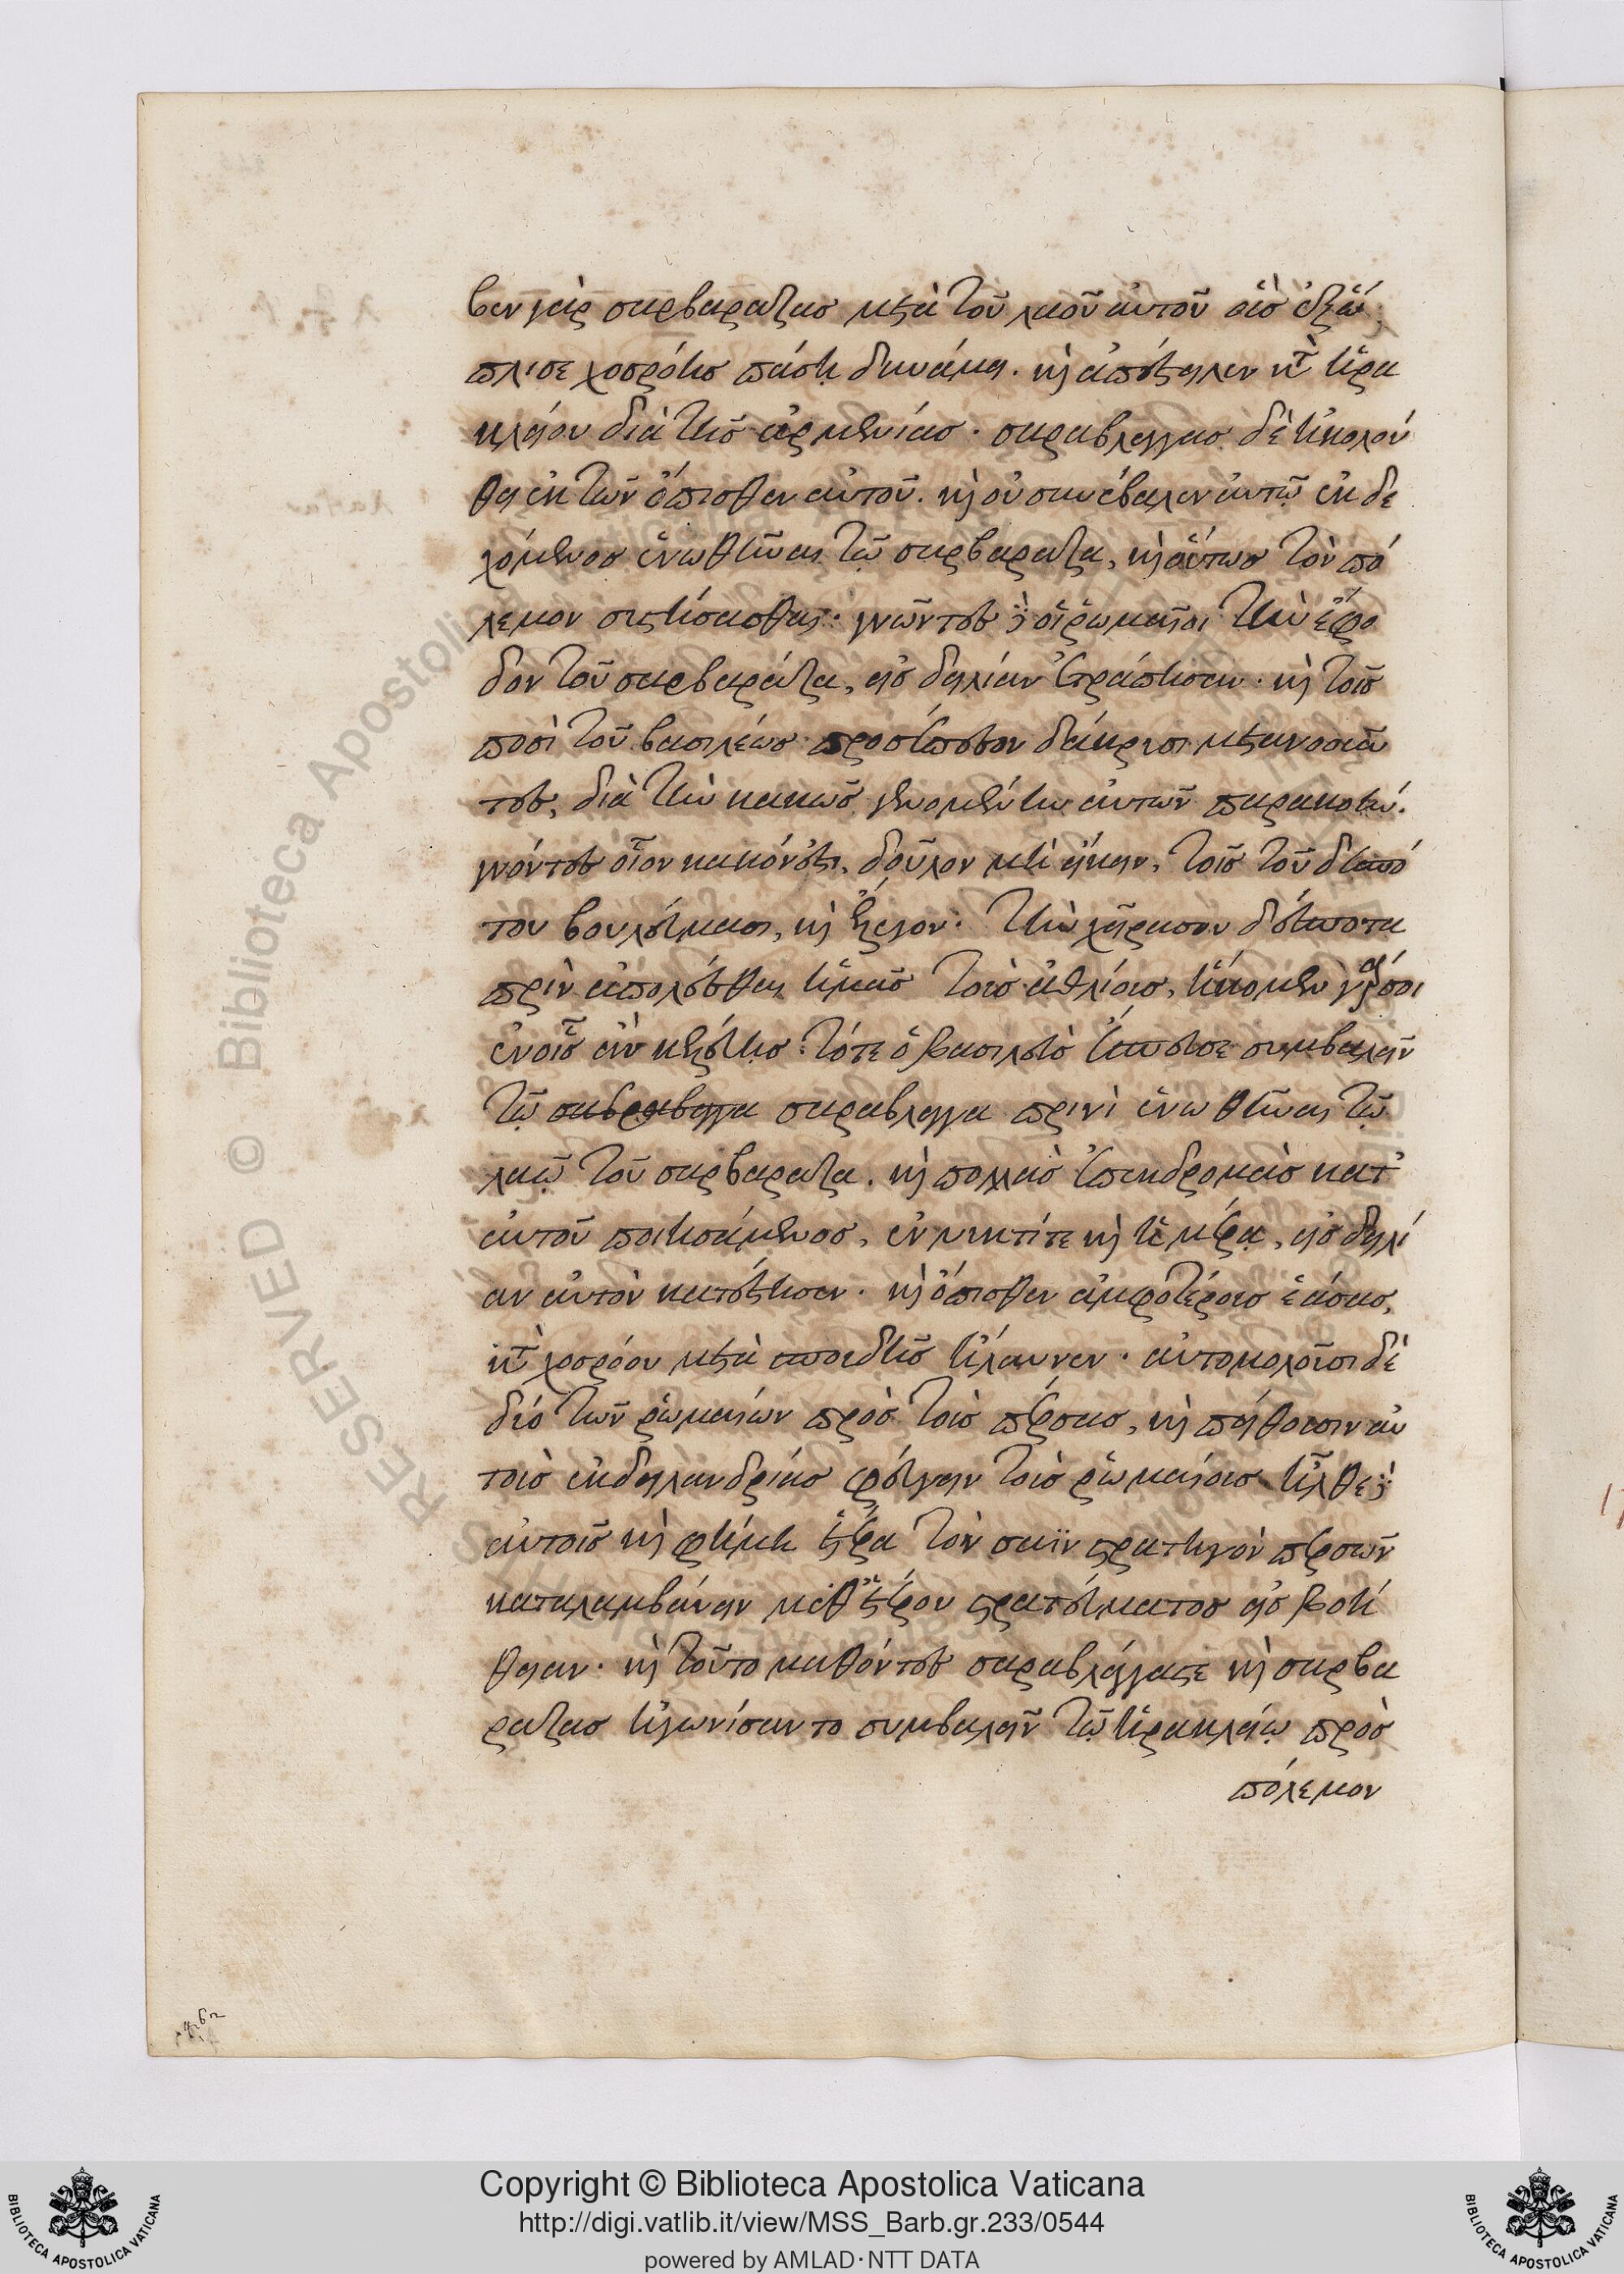 βεν γὰρ σαρβαραζας μετὰ τοῦ λαοῦ αὐτοῦ οὓς ἐξώ
πλισε χοσρόης πάσῃ δυνάμει. καὶ ἀπέστειλεν κατὰ ἡρα
κλείου διὰ τῆς ἀρμενίας. σαραβλαγγας δὲ ἠκολού
θει ἐκ τῶν ὄπισθεν αὐτοῦ. καὶ οὐ συνέβαλεν αὐτῷ ἐκδε
χόμενος ἑνωθῆναι τῷ σαρβαραζα, καὶ οὕτως τὸν πό
λεμον συστήσασθαι· γνῶντες δὲ οἱ ῥωμαῖοι τὴν ἔφο
δον τοῦ σαρβαράζα, εἰς δειλίαν ἐτράπησαν. καὶ τοῖς
ποσὶ τοῦ βασιλέως προσέπεσον δάκρυσι μετανοοῦν
τες, διὰ τὴν κακῶς γενομένην αὐτῶν παρακοήν.
γνόντες οἷον κακόν ἐστι, δοῦλον μὴ εἴκειν, τοῖς τοῦ δεσπό
του βουλεύμασι, καὶ ἔλεγον· τὴν χεῖρα σου δέσποτα
πρὶν ἀπολέσθαι ἡμᾶς τοὺς ἀθλίους, εἴκομεν γάρ σοι
ἐν οἷς ἂν κελεύεις· τότε ὁ βασιλεὺς ἔσπευσε συμβαλεῖν
τῷ σαβραβαγγα σαραβλαγγα πρινὶ ἑνωθῆναι τῷ
λαῷ τοῦ σαρβαραζα. καὶ πολλὰς ἐπεκδρομὰς κατ'
αὐτοῦ ποιησάμενος, ἐν νυκτί τε καὶ ἡμέρᾳ, εἰς δειλί
αν αὐτὸν κατέστησεν. καὶ ὄπισθεν ἀμφοτέρους ἐάσας,
κατὰ χοσρόου μετὰ σπουδῆς ἤλαυνεν. αὐτομολοῦσι δὲ
δύο τῶν ῥωμαίων πρὸς τοὺς πέρσας, καὶ πείθουσιν αὐ
τοὺς ἐκ δειλανδρίας φεύγειν τοὺς ῥωμαίους ἦλθε δὲ
αὐτοῖς καὶ φήμη ἑτέρα τὸν σαϊν στρατηγὸν περσῶν
καταλαμβάνειν μεθ' ἑτέρου στρατεύματος εἰς βοή
θειαν. καὶ τοῦτο μαθόντες σαραβλάγγας τε καὶ σαρβα
ραζας ἠγωνίσαντο συμβαλεῖν τῷ ἡρακλείῳ πρὸς
πόλεμον
Copyright © Biblioteca Apostolica Vaticana
http://digi.vatlib.it/view/MSS_Barb.gr.233/0544
powered by AMLAD·NTT DATA